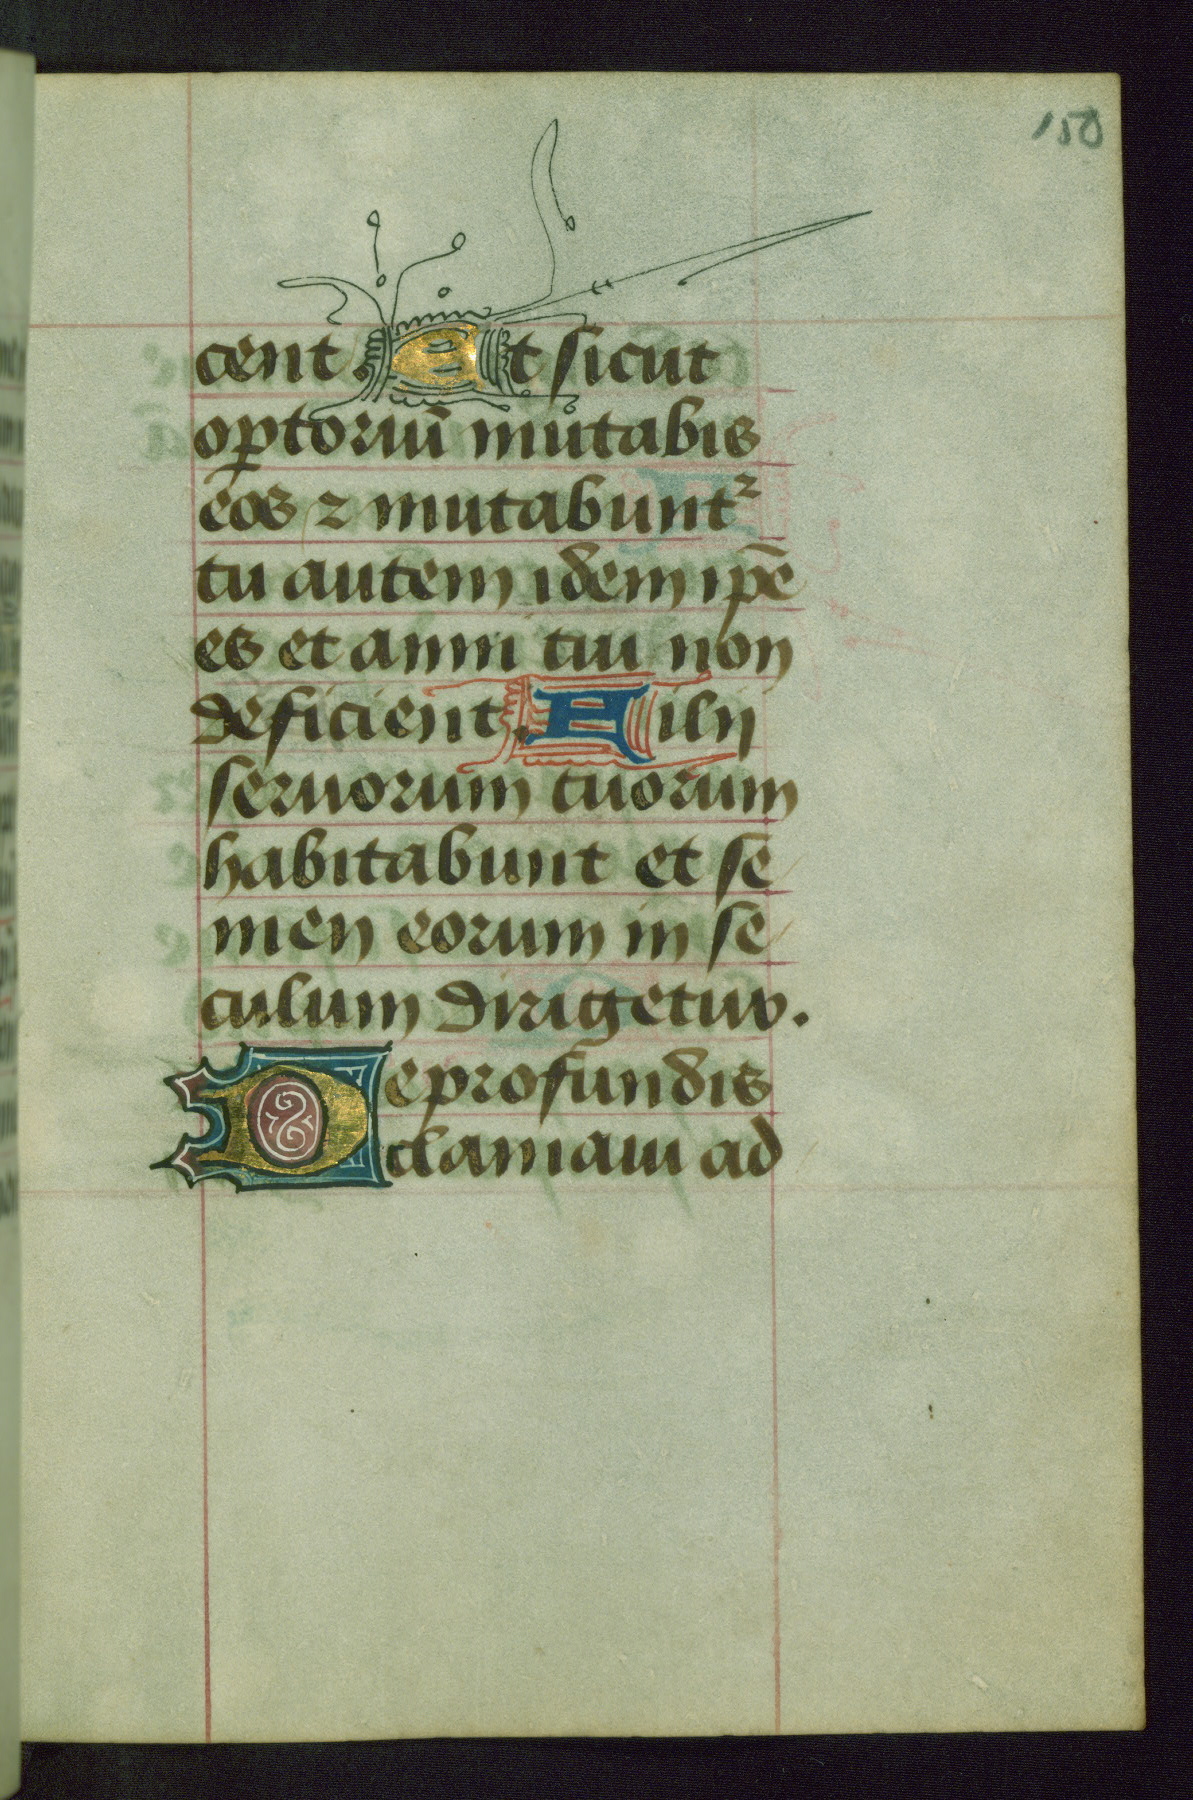 150
cent. Et sicut
optoriū mutabis
eos ⁊ mutabuntᷣ
tu autem idem ip̄e
es et anni tui non
deficient. Filij
seruorum tuorum
habitabunt et se
men eorum in se
culum dirigetur.
De profundis
clamaui ad